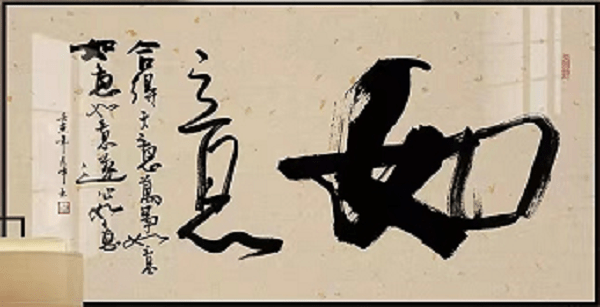 如意
合得天意萬事如意
如意如意遂心如意